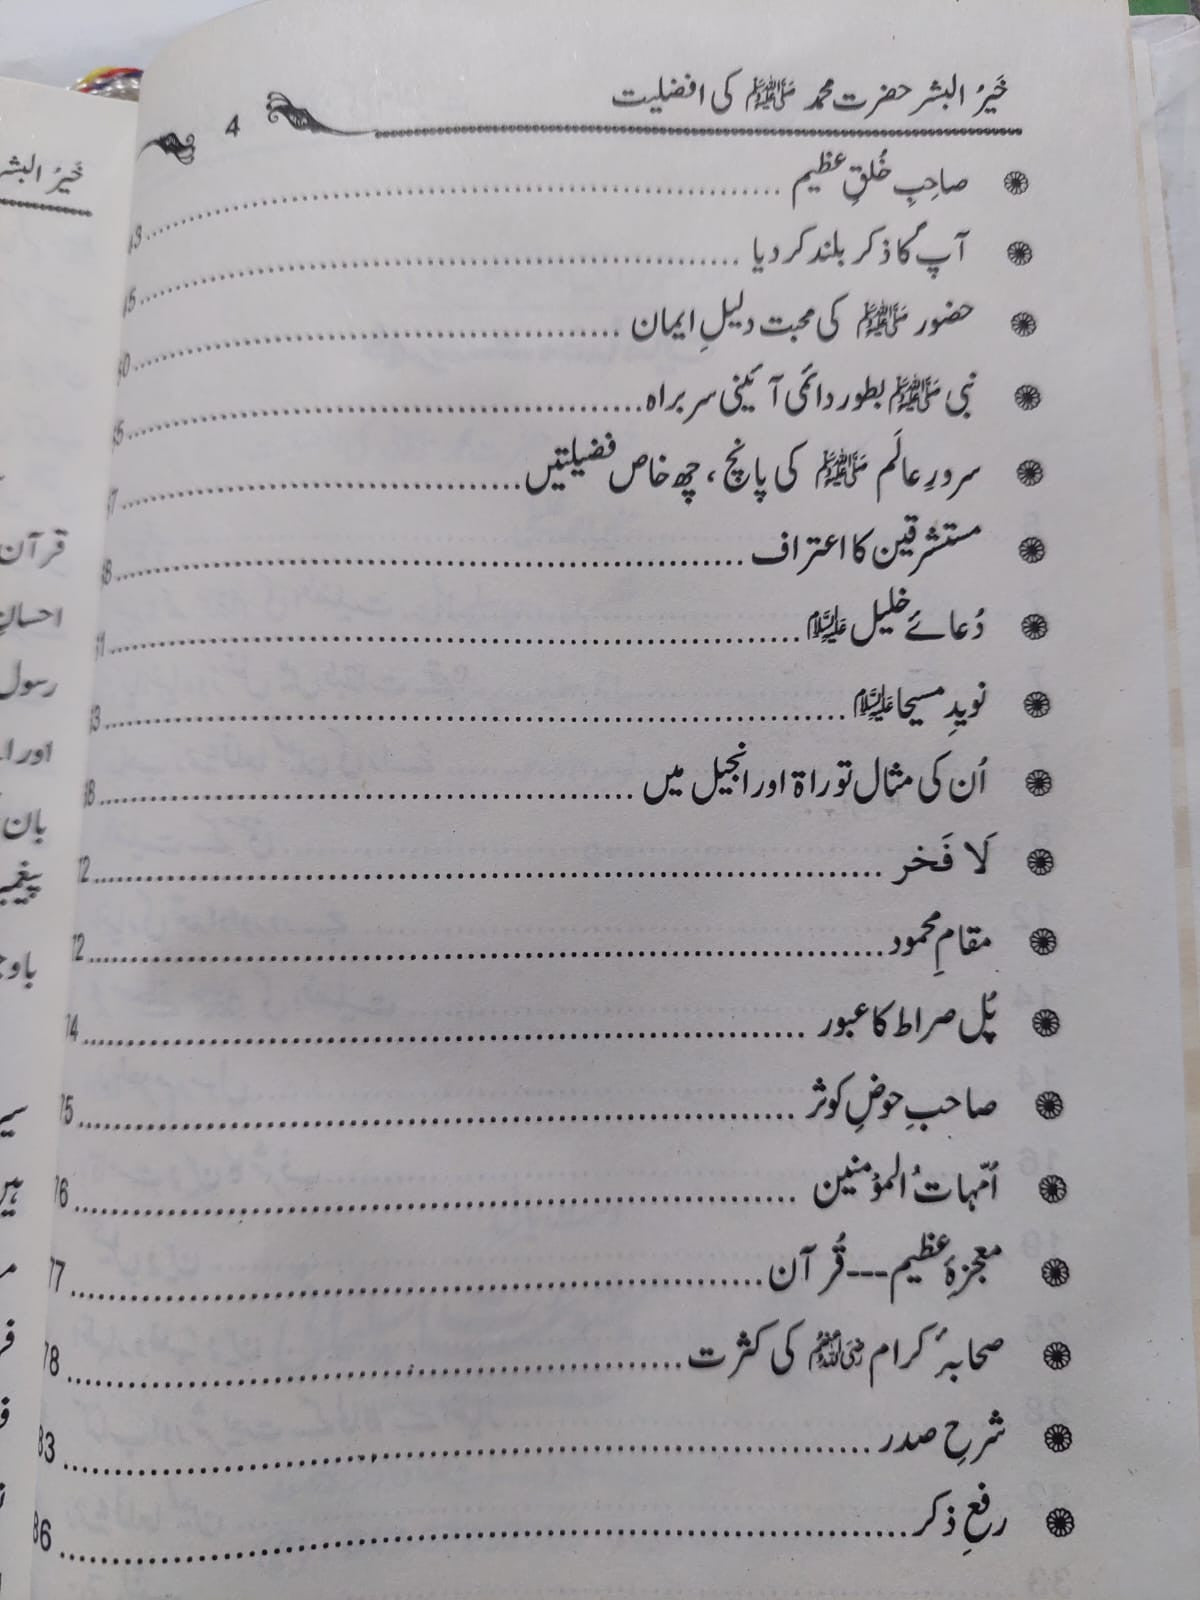 خَیرُ البشر حضرت محمد ﷺ کی افضلیت
4
صاحبِ خُلقِ عظیم ........ 43
آپؐ کا ذکر بلند کر دیا ........ 45
حضور ﷺ کی محبت دلیلِ ایمان ........ 50
نبی ﷺ بطور دائمی آئینی سربراہ ........ 55
سرورِ عالَم ﷺ کی پانچ، چھ خاص فضیلتیں ........ 57
مستشرقین کا اعتراف ........ 58
دُعائے خلیل علیہ السلام ........ 61
نویدِ مسیحا علیہ السلام ........ 63
اُن کی مثال توراۃ اور انجیل میں ........ 68
لَا فَخر ........ 72
مقامِ محمود ........ 72
پُل صراط کا عبور ........ 74
صاحبِ حوضِ کوثر ........ 75
اُمّہاتُ المؤمنین ........ 76
معجزۂ عظیم---قُرآن ........ 77
صحابہ کرام رضی اللہ عنہم کی کثرت ........ 78
شرحِ صدر ........ 83
رفعِ ذکر ........ 86